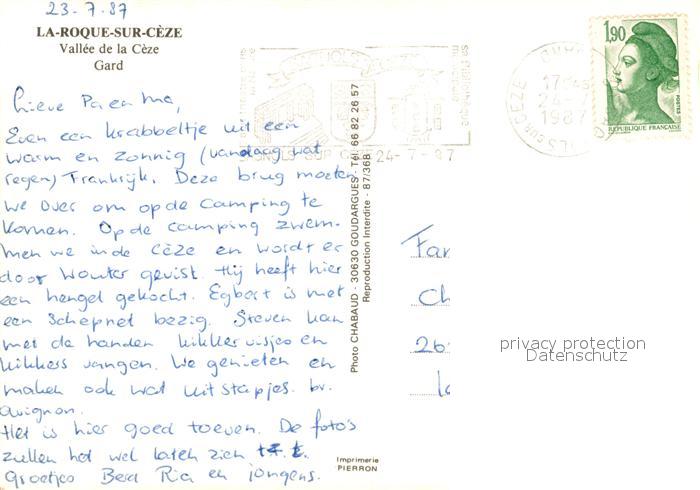 23-7-87
LA-ROQUE-SUR-CÈZE
Vallée de la Cèze
Gard
Lieve Pa en Ma,
Even een krabbeltje uit een
warm en zonnig (vandaag wat
regen) Frankrijk. Deze brug moeten
we over om op de camping te
komen. Op de camping zwem-
men we in de Cèze en wordt er
door Wouter gevist. Hij heeft hier
een hengel gekocht. Egbert is met
een schepnet bezig. Steven kan
met de handen kikkervisjes en
kikkers vangen. We genieten en
maken ook wat uitstapjes. bv.
Avignon.
Het is hier goed toeven. De foto's
zullen het wel laten zien
Groetjes Berd Ria en jongens.
Photo CHABAUD - 30630 GOUDARGUES - Tél. 66 82 26 57
Reproduction Interdite - 87/36B
Imprimerie
PIERRON
24-7-87
17H45
24-7
1987
1,90
POSTES
REPUBLIQUE FRANÇAISE
Fam
Ch
26
privacy protection
Datenschutz